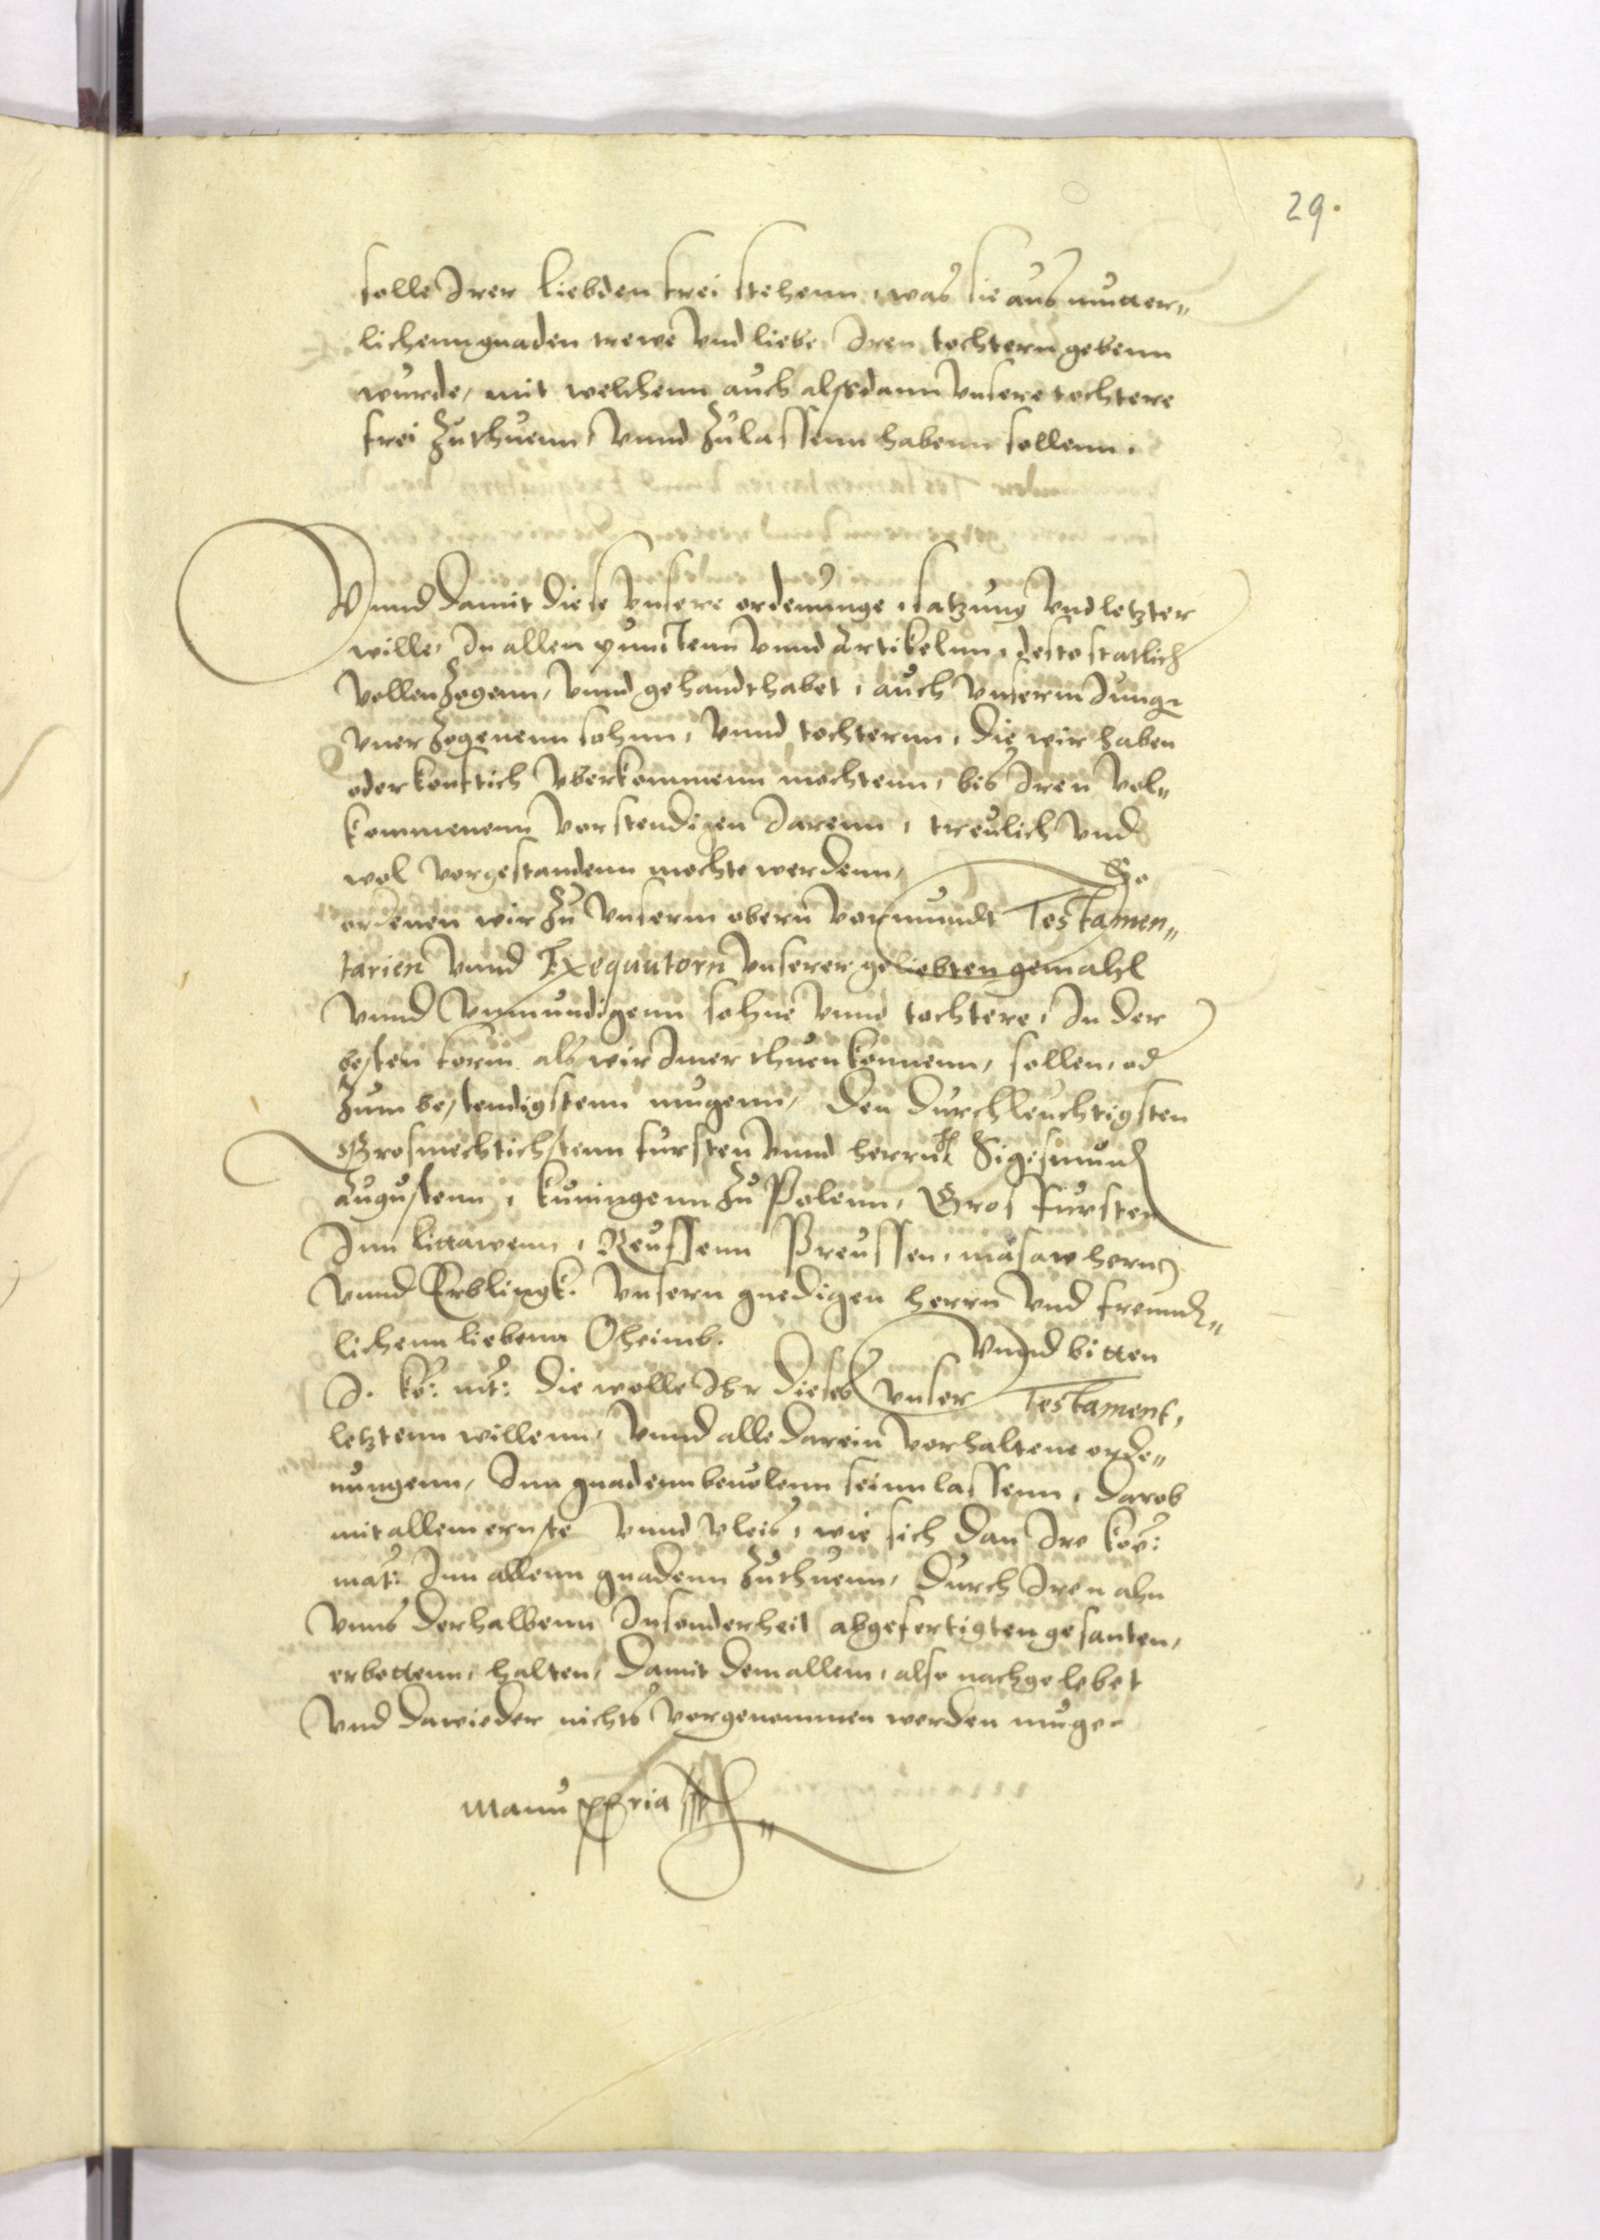 29.
solle Irer Liebden frei stehenn, was sie aus mutter„
lichenn gnaden trewe vnd liebe Iren tochtern gebenn
wurde, mit welchenn auch alssdann vnsere tochtere
frei zuthuenn, vnnd zulassenn habenn sollenn.
Vnnd damit diese vnsere ordenunge, satzung vnd letzter
wille, In allen puncktenn vnnd Artikelnn, desto statlich
vollenzogenn, vnnd gehandthabet, auch vnserm Jung
vnerzogenenn sohnn, vnnd tochternn, die wir haben
oder konftich vberkommenn mochtenn, bis Iren vol„
kommenenn vorstendigen Jarenn, treulich vnd
wol vorgestandenn mochte werdenn, So
ordenen wir zu vnserm obern vormundt Testamen„
tarien vnnd Exequutorn vnserer geliebten gemahl
vnnd vnmundigenn sohne vnnd tochtere, In der
besten form als wir Imer thuen konnenn, sollen, od
zum bestendigstenn mugenn, den durchleuchtigsten
Grosmechtichstenn fursten vnnd herrn H Sigismund
Augustenn, kuningenn zu Polenn, Gros fursten
Inn Littawenn, Reussenn Preussen, Masaw hern
vnnd Erblingk. vnsern gnedigen herrn vnd freund„
lichenn liebenn Oheimb. Vnnd bitten
I. ko: mt: die wolle Ihr dieses vnser Testament,
letztenn willenn, vnnd alle darein vorhaltene orde„
nungenn, Inn gnadenn beuolenn seinn lassenn, darob
mit allem ernste vnnd vleis, wie sich dan Ire ko:
mat: Inn allenn gnadenn zuthuenn, durch Iren ahn
vnns derhalbenn Insonderheit abgefertigten gesanten,
erbottenn, halten, damit dem allem, also nachgelebet
vnd dawieder nichts vorgenommen werden muge
Manu ppria